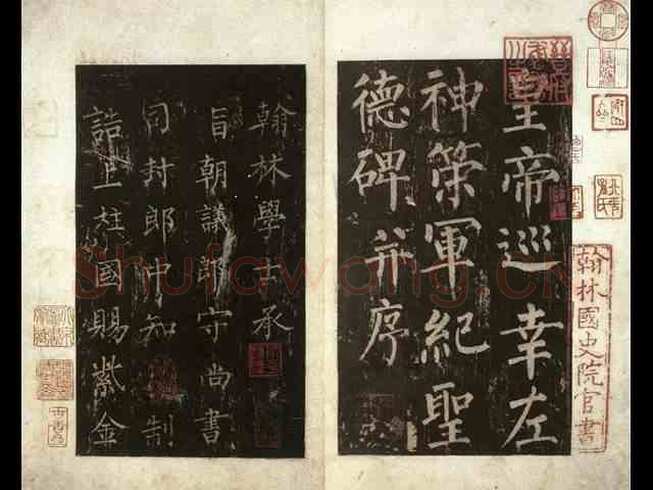 皇帝巡幸左
神策軍紀聖
德碑并序
翰林學士承
旨朝議郎守尚書
司封郎中知制
誥上柱國賜紫金
翰林國史院官書
shufawang.cn